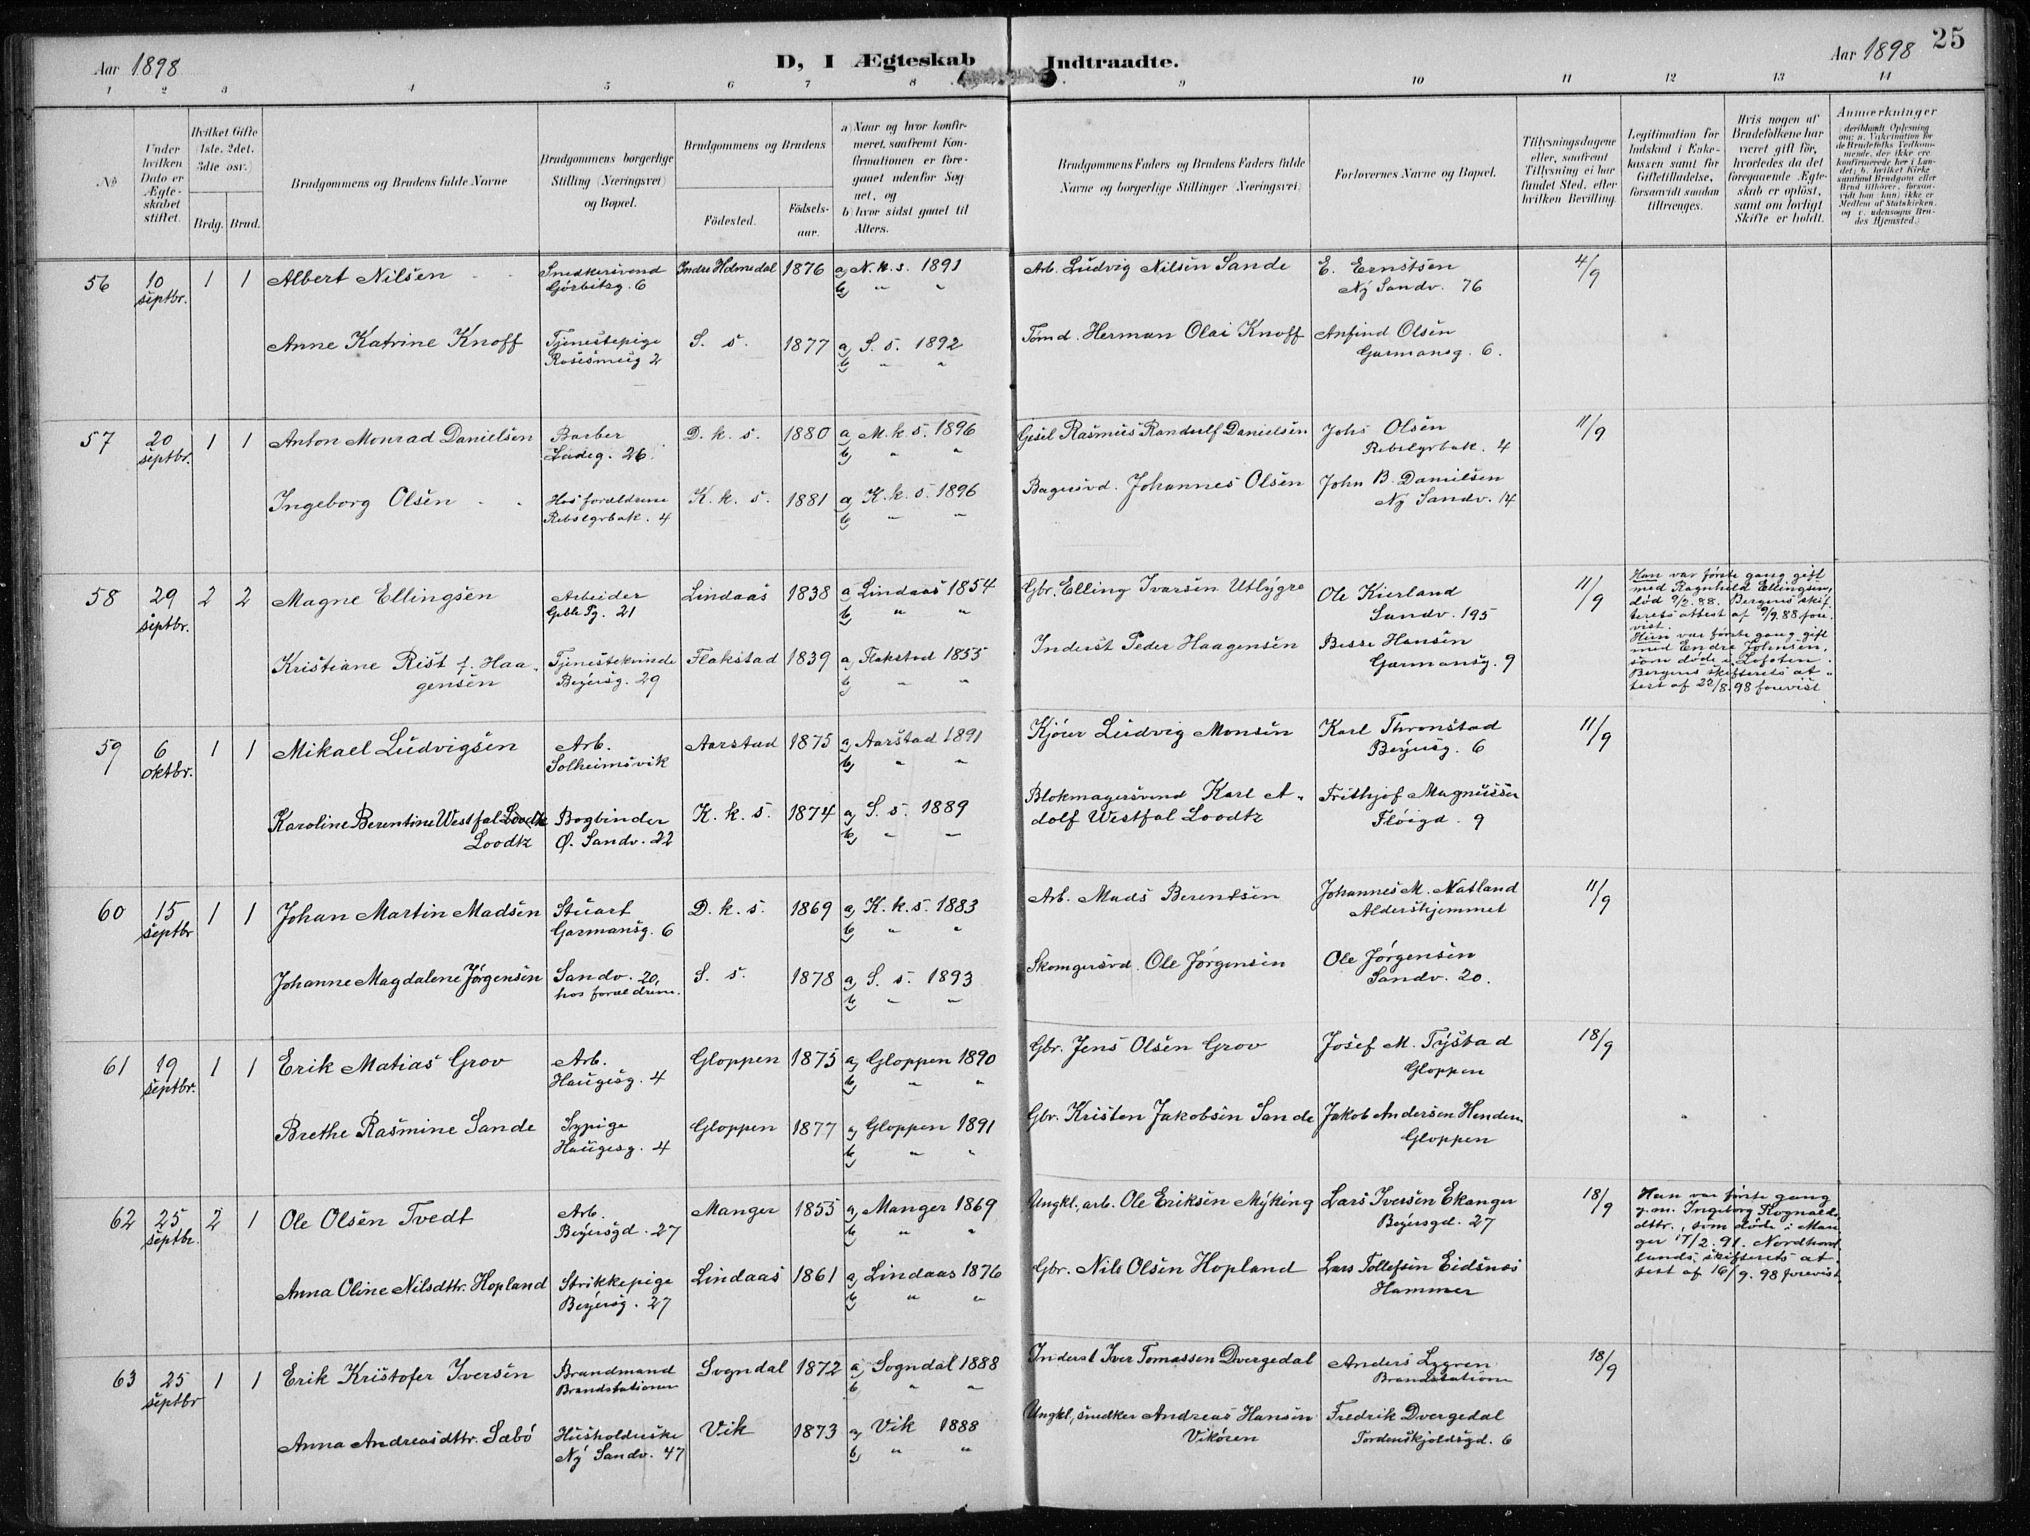 Aar 1898
D, I Ægteskab Indtraadte.
Aar 1898
25
1 2 3 4 5 6 7 8 9 10 11 12 13 14
No
Under hvilken Dato er Ægteskabet stiftet.
Hvilket Gifte (1ste, 2det, 3die osv.)
Brdg. Brud.
Brudgommens og Brudens fulde Navne
Brudgommens borgerlige Stilling (Næringsvei) og Bopæl.
Brudgommens og Brudens
Födested.
Födsels-aar.
a) Naar og hvor konfirmeret, saafremt Konfirmationen er foregaaet udenfor Sognet, og
b) hvor sidst gaaet til Alters.
Brudgommens Faders og Brudens Faders fulde Navne og borgerlige Stillinger (Næringsvei)
Forlovernes Navne og Bopæl.
Tillysningsdagene eller, saafremt Tillysning ei har fundet Sted, efter hvilken Bevilling.
Legitimation for Indskud i Enkekassen samt for Giftetilladelse, forsaavidt saadan tiltrænges.
Hvis nogen af Brudefolkene har været gift för, hvorledes da det foregaaende Ægteskab er oplöst, samt om lovligt Skifte er holdt.
Anmærkninger
56 10 septbr. 1 1 Albert Nilsen Snedkersvend Görbitzg. 6 Indre Holmedal 1876 a) N. k. s. 1891 b) " " Arb. Ludvig Nilsen Sande E. Ernstsen Ny Sandv. 76 4/9
Anne Katrine Knoff Tjenestepige Rosesmug 2 S. s. 1877 a) S. s. 1892 b) " " Tømd. Herman Olai Knoff Anfind Olsen Garmansg. 6.
57 20 septbr. 1 1 Anton Monrad Danielsen Barber Ladeg. 26. D. k. s. 1880 a) M. k. s. 1896 b) " " Gesel Rasmus Randulf Danielsen Johs Olsen Rebslgrbak. 4 11/9
Ingeborg Olsen Hos forældrene Rebslgrbak. 4 K. k. s. 1881 a) K. k. s. 1896 b) " " Bagersvd. Johannes Olsen John B. Danielsen Ny Sandv. 14
58 29 septbr. 2 2 Magne Ellingsen Arbeider Gble Pg. 21 Lindaas 1838 a) Lindaas 1854 b) " " Gbr. Elling Ivarsen Utlygre Ole Kierland Sandv. 195 11/9
Han var første gang gift med Ragnhild Ellingsen, død 9/2. 88. Bergens skifterets attest af 9/9. 88 forevist.
Kristiane Rist f. Haagensen Tjenestekvinde Beyersg. 29 Flakstad 1839 a) Flakstad 1855 b) " " Inderst Peder Haagensen Besse Hansen Garmansg. 9
Hun var første gang gift med Endre Johnsen, som døde i Lofoten. Bergens skifterets attest af 22/8. 98 forevist
59 6 oktbr. 1 1 Mikael Ludvigsen Arb. Solheimsvik Aarstad 1875 a) Aarstad 1891 b) " " Kjører Ludvig Monsen Karl Thronstad Beyersg. 6 11/9
Karoline Berentine Westfal Loodtz Bogbinder Ø. Sandv. 22 K. k. s. 1874 a) S. s. 1889 b) " " Blokmagersvend Karl Adolf Westfal Loodtz Frithjof Magnussen Fløigd. 9
60 15 septbr 1 1 Johan Martin Madsen Stuart Garmansg. 6 D. k. s. 1869 a) K. k. s. 1883 b) " " Arb. Mads Berentsen Johannes M. Natland Alderskjemmet 11/9
Johanne Magdalene Jørgensen Sandv. 20, hos forældrene. S. s. 1878 a) S. s. 1893 b) " " Skomgersvd. Ole Jørgensen Ole Jørgensen Sandv. 20.
61 19 septbr. 1 1 Erik Matias Grov Arb. Haugesg. 4 Gloppen 1875 a) Gloppen 1890 b) " " Gbr. Jens Olsen Grov Josef M. Tystad Gloppen 18/9
Brethe Rasmine Sande Sypige Haugesg. 4 Gloppen 1877 a) Gloppen 1891 b) " " Gbr. Kristen Jakobsen Sande Jakob Andersen Henden Gloppen
62 25 septbr. 2 1 Ole Olsen Tvedt Arb. Beyersgd. 27 Manger 1855 a) Manger 1869 b) " " Ungkl. arb. Ole Eriksen Myking Lars Iversen Ekanger Beyersgd. 27 18/9
Han var første gang g. m. Ingeborg Rognaldsdttr., som døde i Manger 17/2. 91. Nordhordlands skifterets attest af 16/9. 98 forevist.
Anna Oline Nilsdttr. Hopland Strikkepige Beyersg. 27 Lindaas 1861 a) Lindaas 1876 b) " " Gbr. Nils Olsen Hopland Lars Tollefsen Eidsnes Hammer
63 25 septbr 1 1 Erik Kristofer Iversen Brandmand Brandstationen Sogndal 1872 a) Sogndal 1888 b) " " Inderst Iver Tomassen Dvergedal Anders Lygren Brandstation 18/9
Anna Andreasdttr. Sæbø Husholderske Ny Sandv. 47 Vik 1873 a) Vik 1888 b) " " Ungkl, snedker Andreas Hansen Vikøren Fredrik Dvergedal Tordenskjoldsgd. 6